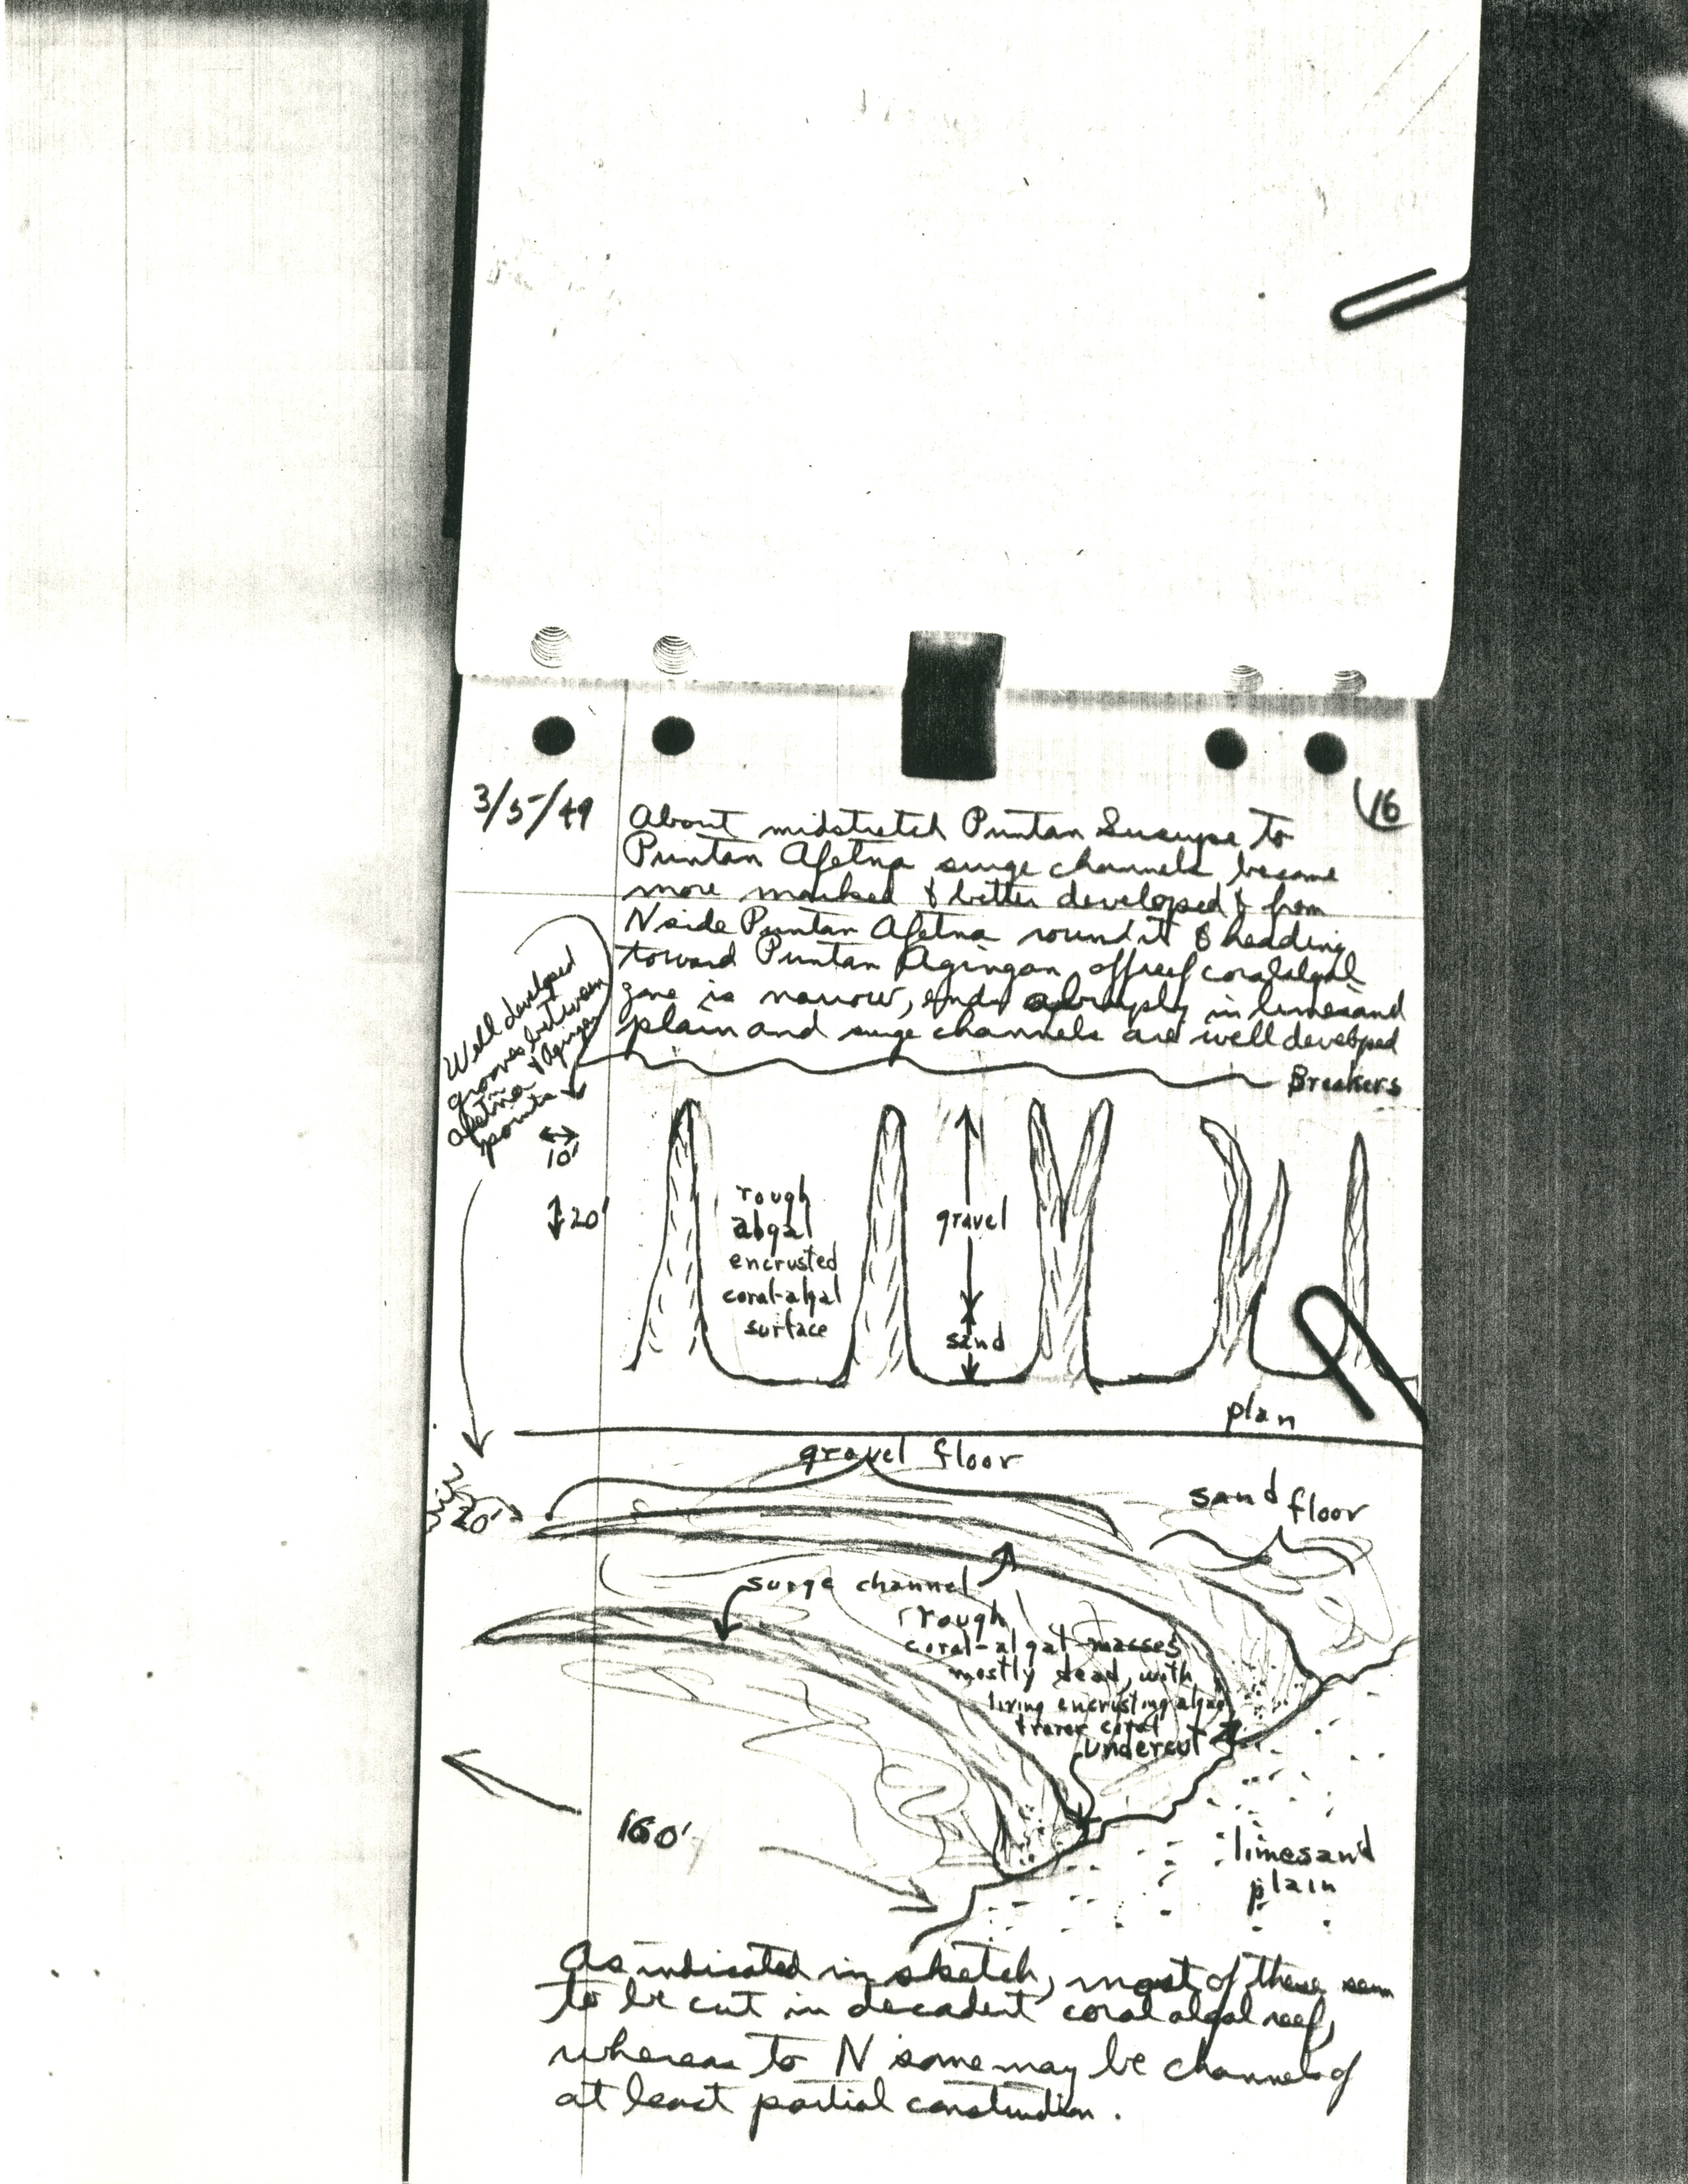 3/5/49
16
About midstretch Puntan Susupe to
Puntan Afetna surge channels become
more marked & better developed & from
N side Puntan Afetna round it & heading
toward Puntan Agingan, offreef coralalgal
zone is narrow, ends abruptly in limesand
plain and surge channels are well developed
Well developed
grooves between
Afetna & Agingan
points
Breakers
10'
20'
rough
algal
encrusted
coral-algal
surface
gravel
sand
plan
gravel floor
sand floor
20'
surge channel
rough
coral-algal masses
mostly dead, with
living encrusting algae
& rarer coral
undercut
160'
limesand
plain
As indicated in sketch, most of these seem
to be cut in decadent coral algal reef,
whereas to N some may be channels of
at least partial construction.